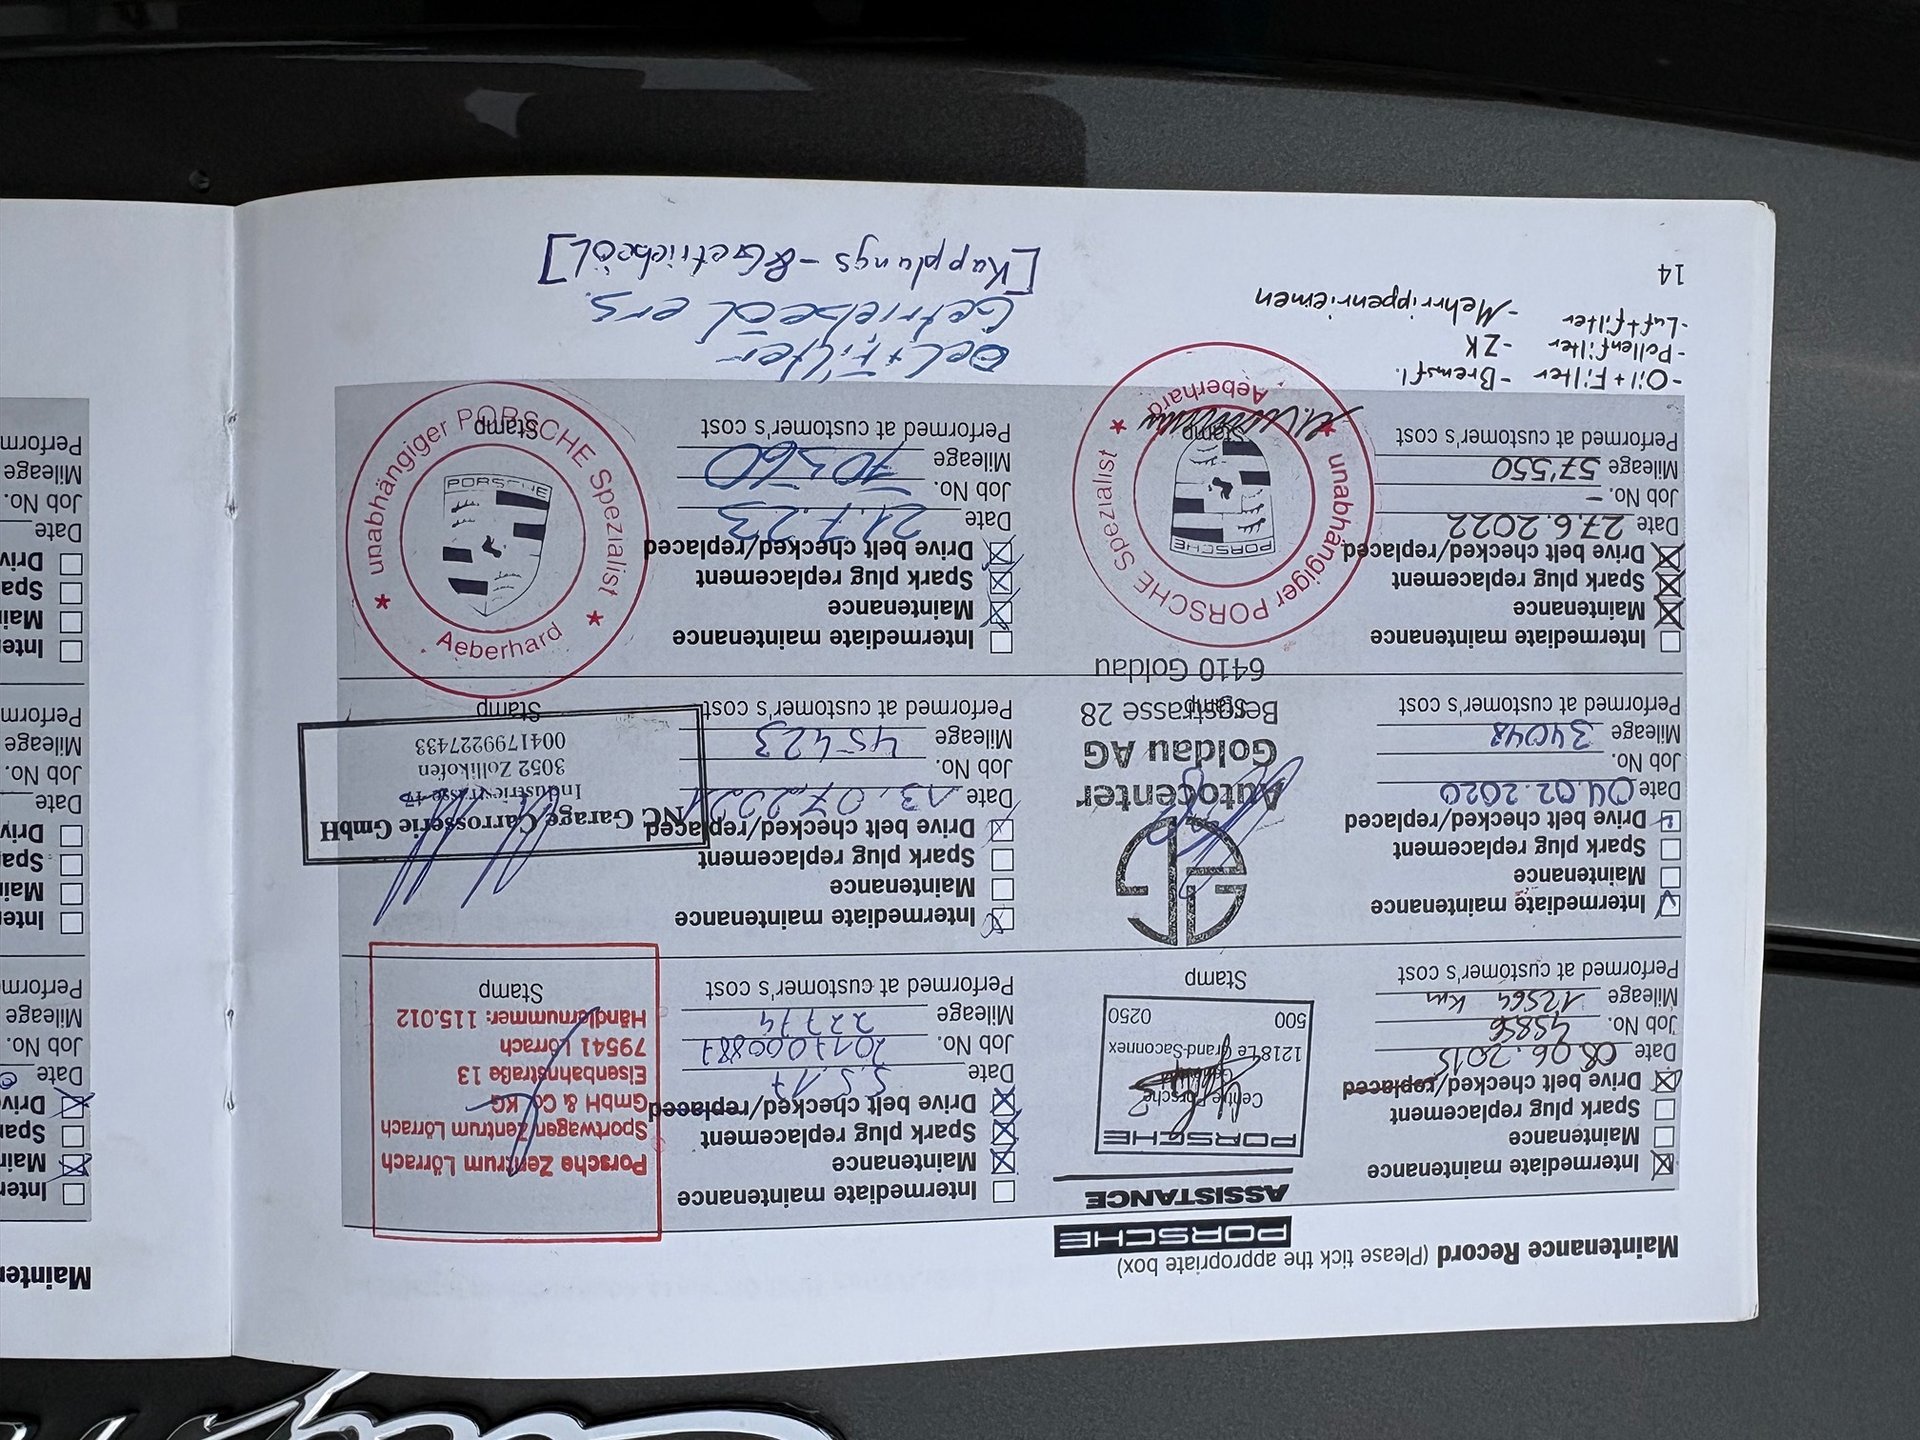 Maintenance Record (Please tick the appropriate box)
Intermediate maintenance
Maintenance
Spark plug replacement
Drive belt checked/replaced
Date 08.06.2015
Job No. 45856
Mileage 12564 Km
Performed at customer's cost
PORSCHE
ASSISTANCE
PORSCHE
Centre Porsche
1218 Le Grand-Saconnex
500 0250
Stamp
Intermediate maintenance
Maintenance
Spark plug replacement
Drive belt checked/replaced
Date 5.5.17
Job No. 201700887
Mileage 22774
Performed at customer's cost
Porsche Zentrum Lörrach
Sportwagen Zentrum Lörrach
GmbH & Co. KG
Eisenbahnstraße 13
79541 Lörrach
Händlernummer: 115.012
Stamp
Intermediate maintenance
Maintenance
Spark plug replacement
Drive belt checked/replaced
Date 04.02.2020
Job No.
Mileage 34048
Performed at customer's cost
Autocenter
Goldau AG
Bergstrasse 28
6410 Goldau
Stamp
Intermediate maintenance
Maintenance
Spark plug replacement
Drive belt checked/replaced
Date 13.07.2021
Job No.
Mileage 45423
Performed at customer's cost
NC Garage Carrosserie GmbH
Industriestrasse
3052 Zollikofen
0041799227433
Stamp
Intermediate maintenance
Maintenance
Spark plug replacement
Drive belt checked/replaced
Date 27.6.2022
Job No. -
Mileage 57'550
Performed at customer's cost
unabhängiger PORSCHE Spezialist
Aeberhard
PORSCHE
Stamp
Intermediate maintenance
Maintenance
Spark plug replacement
Drive belt checked/replaced
Date 21.7.23
Job No.
Mileage 70560
Performed at customer's cost
unabhängiger PORSCHE Spezialist
Aeberhard
PORSCHE
Stamp
-Oil+Filter -Bremsfl.
-Pollenfilter -ZK
-Luftfilter -Mehrrippenriemen
Oel+Filter
Getriebeöl ers.
[Kupplungs-&Getriebeöl]
14
Mainte
Inter
Main
Spa
Driv
Date
Job No.
Mileage
Perform
Inter
Main
Spa
Driv
Date
Job No.
Mileage
Perform
Inter
Main
Spa
Driv
Date
Job No.
Mileage
Perform